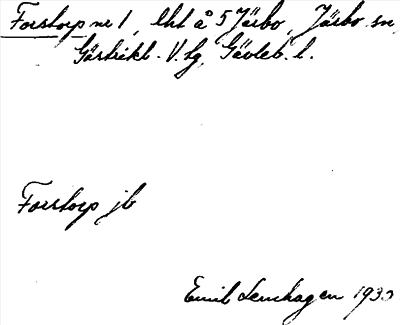 Forstorp nr 1, lht å 5 Järbo, Järbo sn,
Gästrikl. V. tg, Gävleb. l.
Forstorp jb
Emil Lenhagen 1930